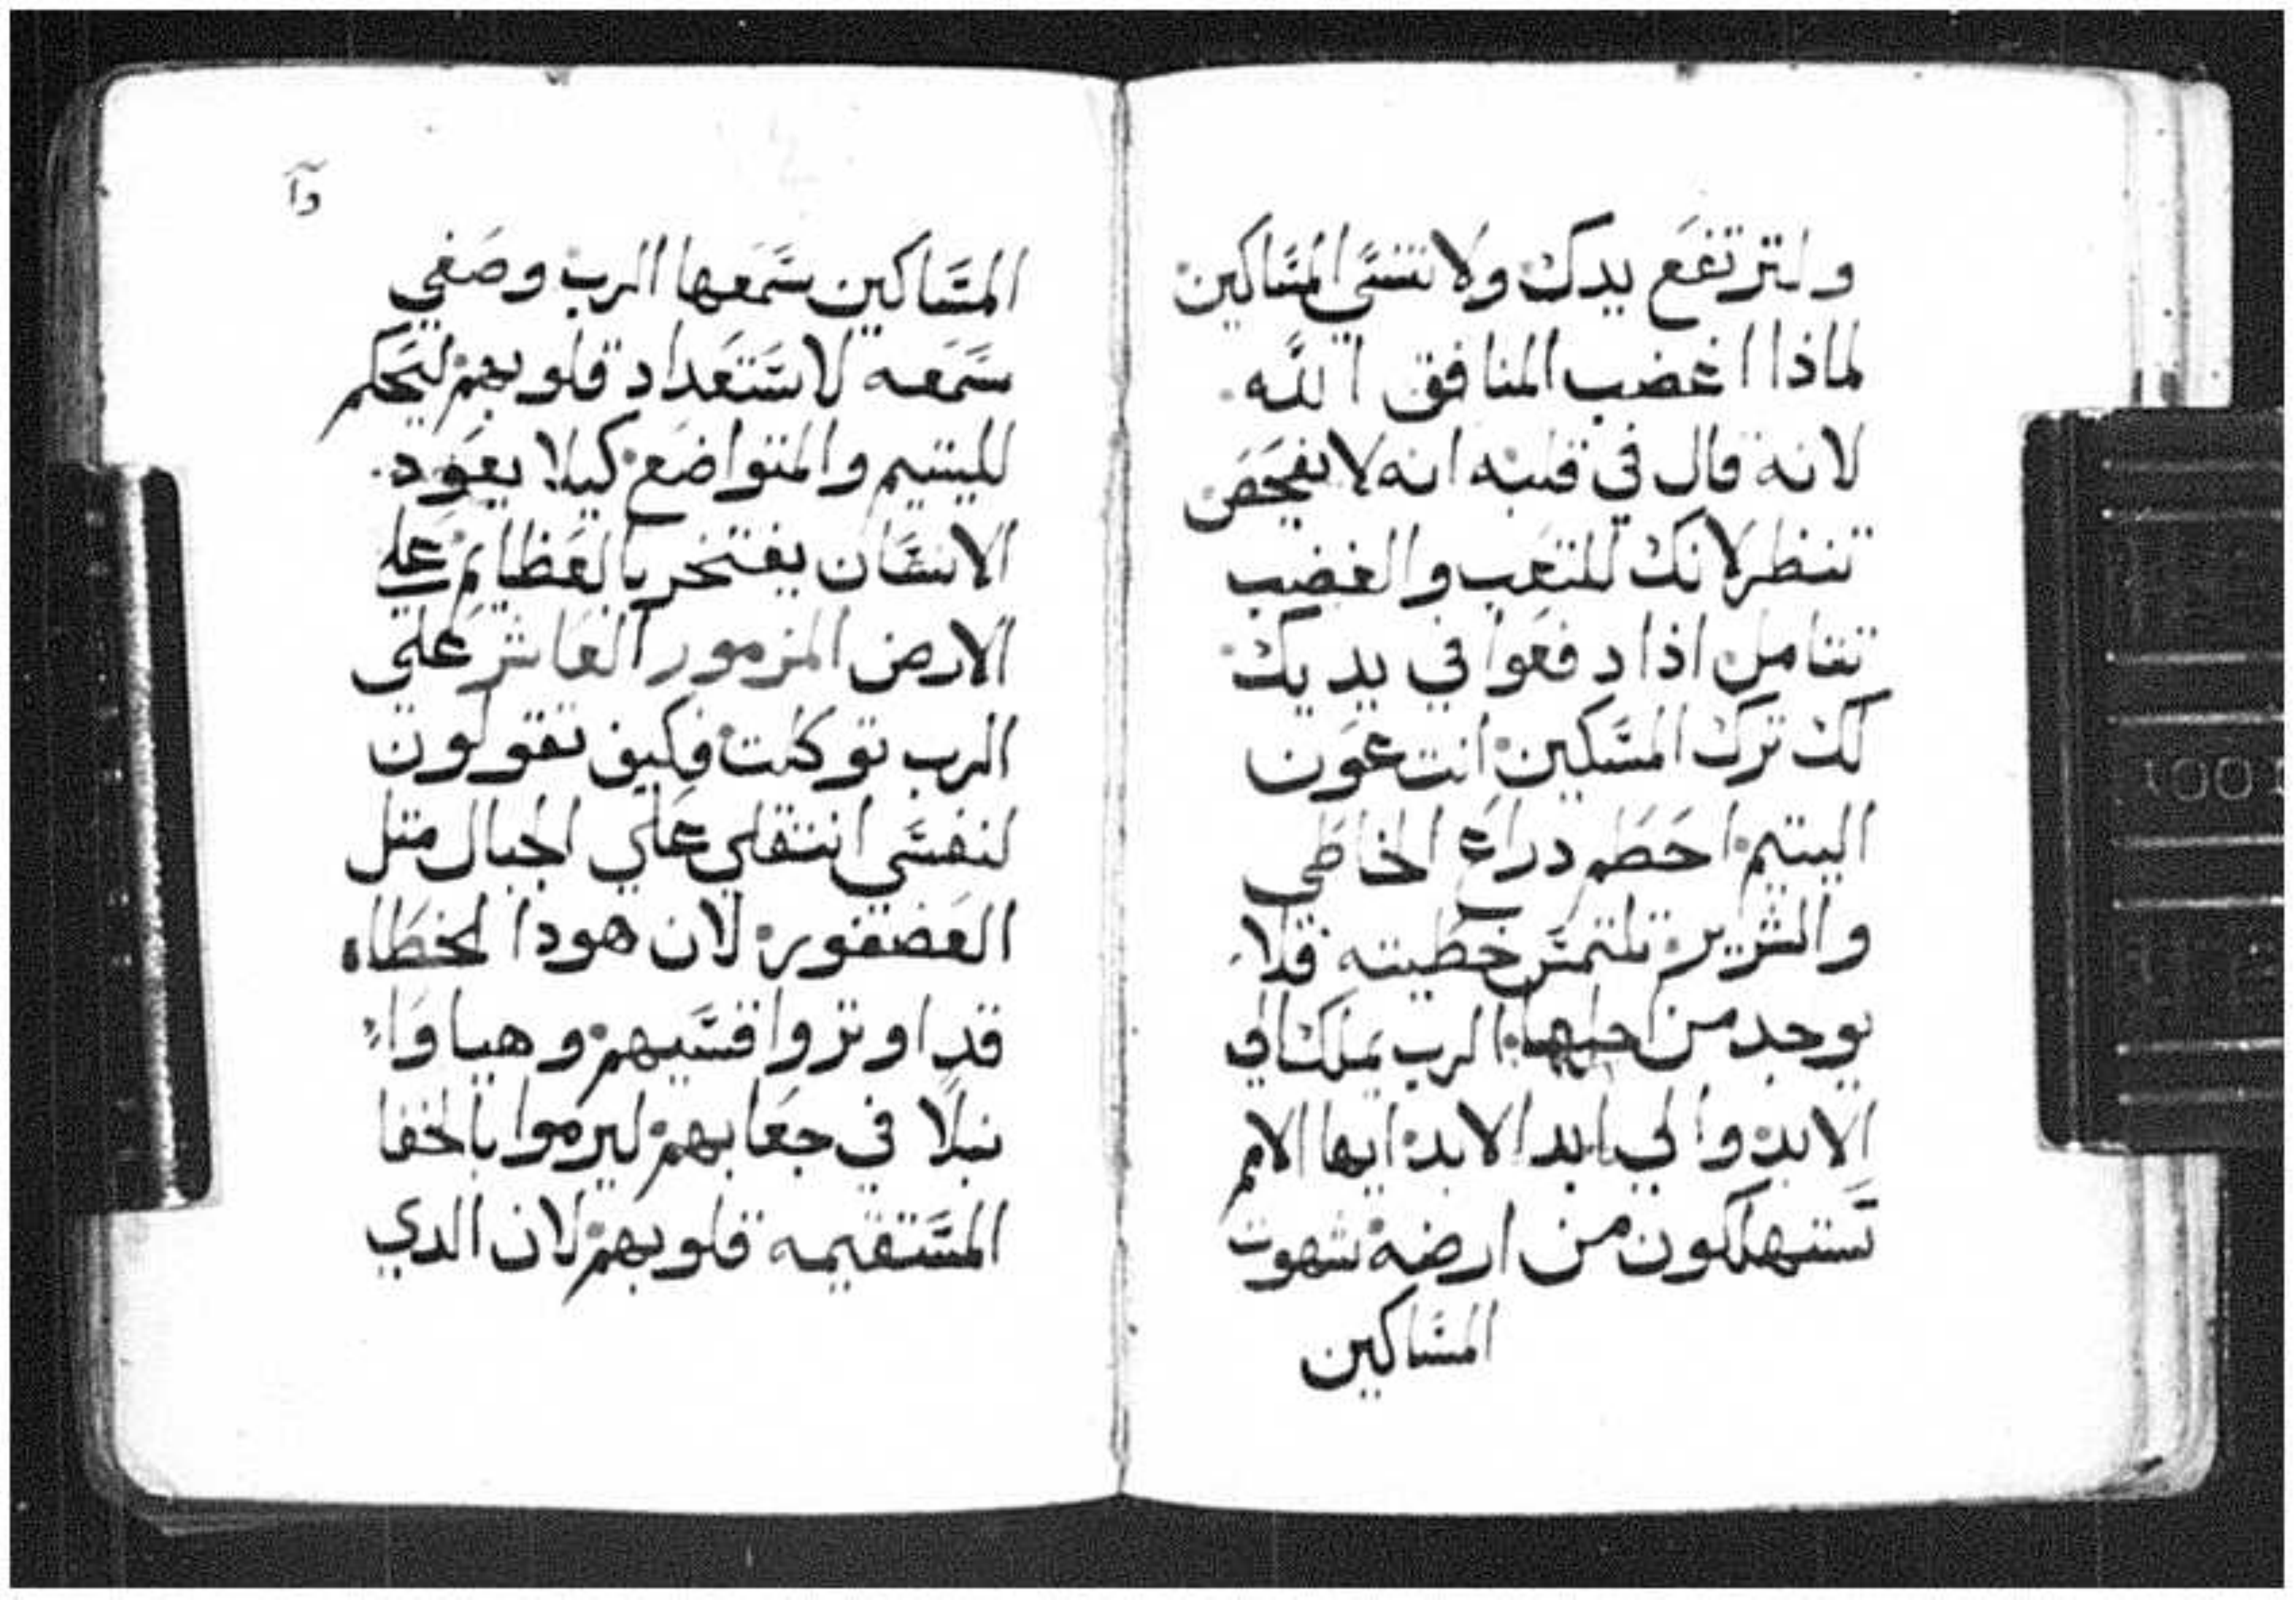 ولترتفع يدك ولا تنسي المساكين
لماذا اغضب المنافق الله
لانه قال في قلبه انه لا يفحص
تنظر لانك للتعب والغضب
تتامل اذا دفعوا في يديك
لك ترك المسكين انت عون
اليتيم احطم دراع الخاطي
والشرير تلتمس خطيته فلا
يوجد من اجلها الرب يملك الي
الابد والي ابد الابد ايها الامم
تستهلكون من ارضه شهوت
المساكين
المساكين سمعها الرب وصغي
سمعه لاستعداد قلوبهم ليحكم
لليتيم والمتواضع كيلا يعود
الانسان يفتخر بالعظايم علي
الارض المزمور العاشر علي
الرب توكلت فكيف تقولون
لنفسي انتقلي علي الجبال متل
العصفور لان هودا الخطاه
قد اوتروا قسيهم وهياوا
نبلا في جعابهم ليرموا بالخفا
المستقيمه قلوبهم لان الدي